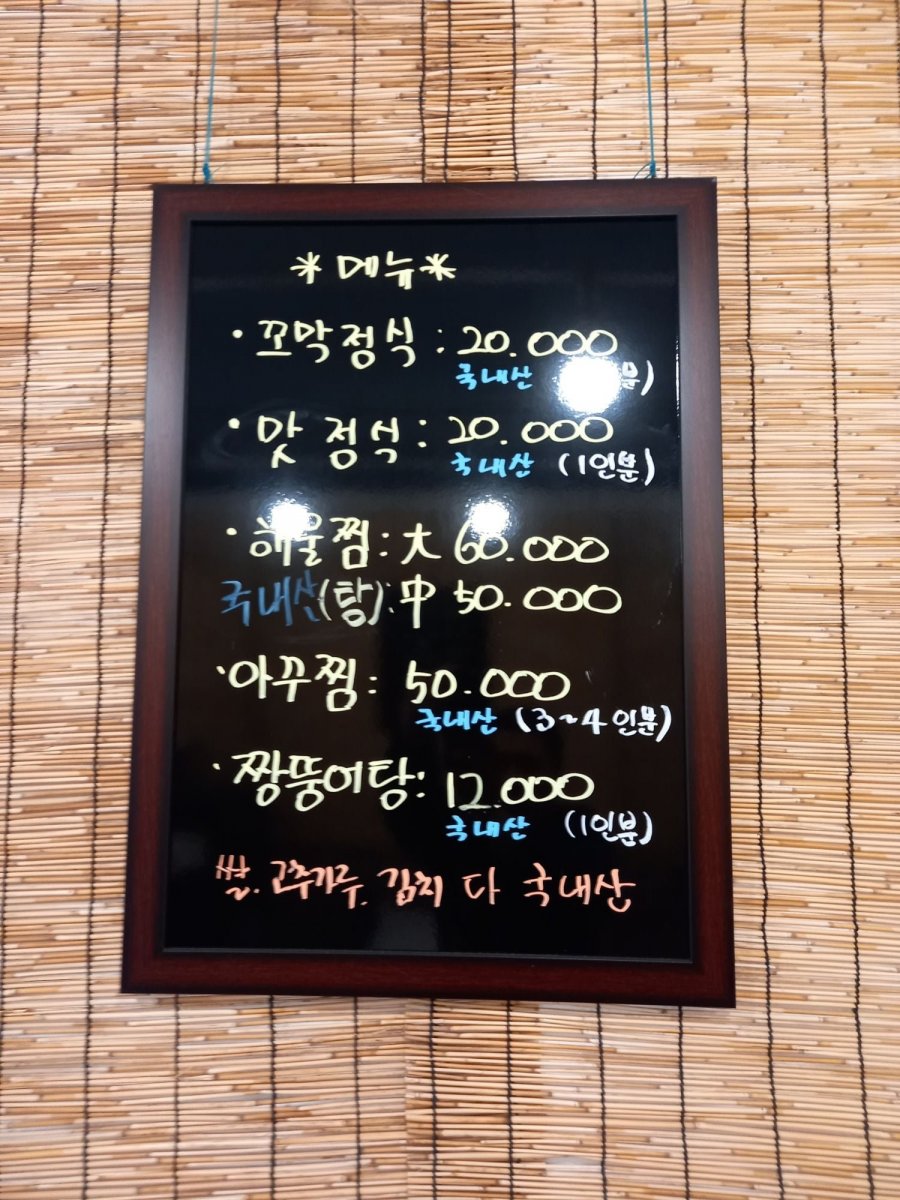 *메뉴*
·꼬막정식 : 20.000
국내산 분)
·맛 정식 : 20.000
국내산 (1인분)
·해물찜 : 大 60.000
국내산(탕) : 中 50.000
·아꾸찜 : 50.000
국내산 (3~4인분)
·짱뚱어탕 : 12.000
국내산 (1인분)
쌀. 고추가루. 김치 다 국내산